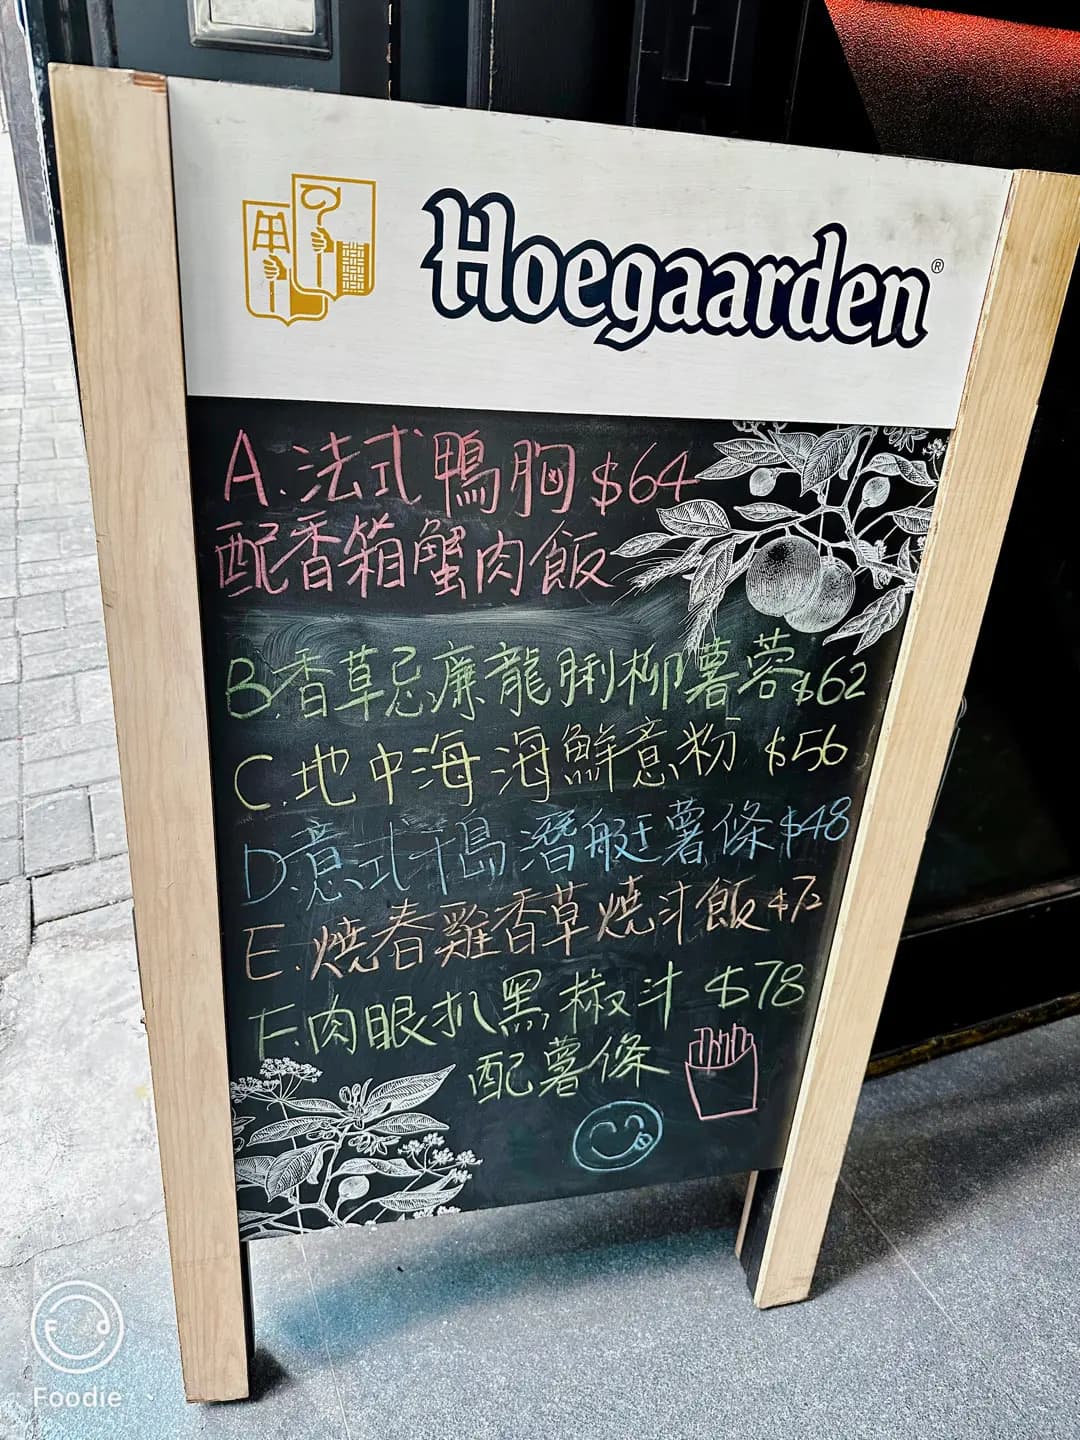 Hoegaarden®
A.法式鴨胸 $64
配香箱蟹肉飯
B.香草忌廉龍脷柳薯蓉 $62
C.地中海海鮮意粉 $56
D.意式千島潛艇薯條 $48
E.燒春雞香草燒汁飯 $72
F.肉眼扒黑椒汁 $78
配薯條
Foodie